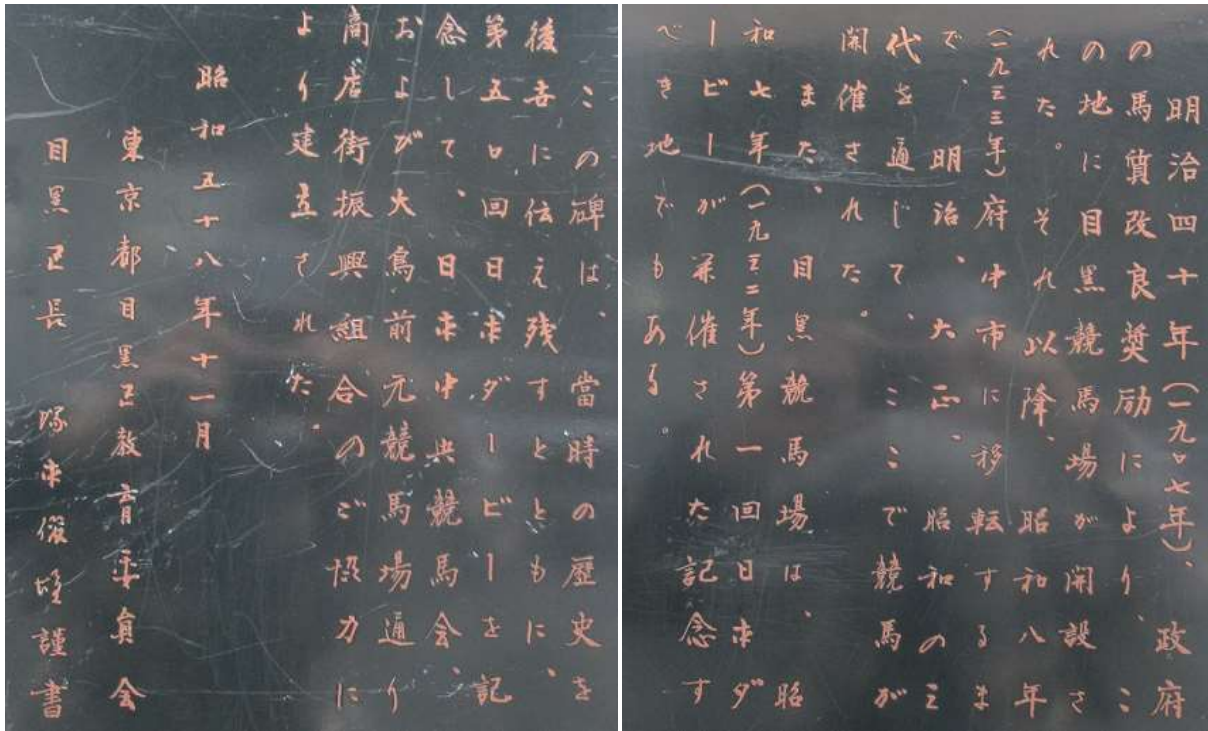 明治四十年(一九〇七年)、政府
の馬質改良奨励により、こ
の地に目黒競馬場が開設さ
れた。それ以降、昭和八年
(一九三三年)府中市に移転するま
で、明治、大正、昭和の三
代を通じて、ここで競馬が
開催された。
また、目黒競馬場は、昭
和七年(一九三二年)第一回日本ダ
ービーが開催された記念す
べき地でもある。
この碑は、當時の歴史を
後世に伝え残すとともに、
第五〇回日本ダービーを記
念して、日本中央競馬会、
および大鳥前元競馬場通り
商店街振興組合のご協力に
より建立された。
昭和五十八年十一月
東京都目黒区教育委員会
目黒区長 塚本俊雄謹書